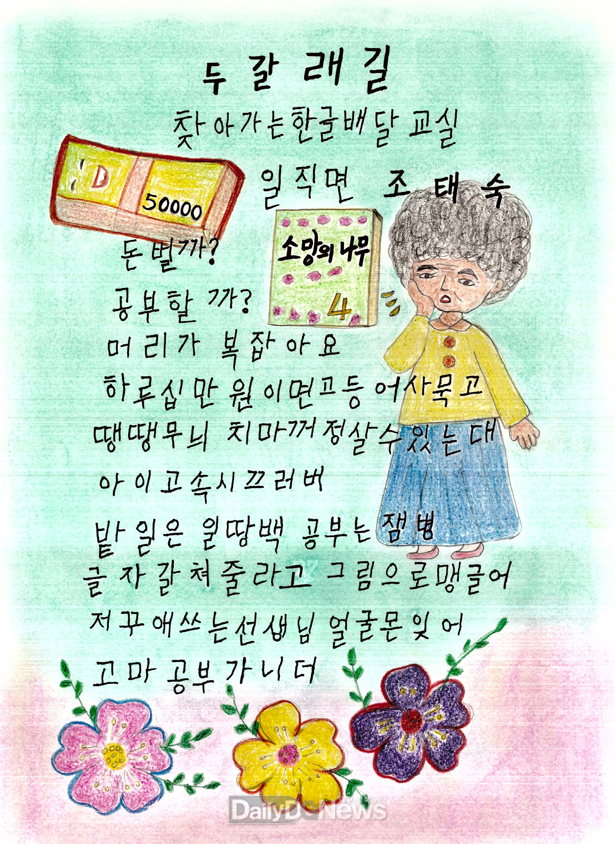 두 갈 래 길
찾아가는한글배달 교실
일직면 조태숙
50000
돈 벌까?
소망의 나무
4
공부할 까?
머리가 복잡아요
하루십만원이면고등어사묵고
땡땡무늬 치마꺼정살수있는대
아이고속시끄러버
밭일은 일땅백 공부는잼병
글자갈쳐줄라고 그림으로맹글어
저꾸애쓰는선생님 얼굴몬잊어
고마공부가니더
DailyDaeNews